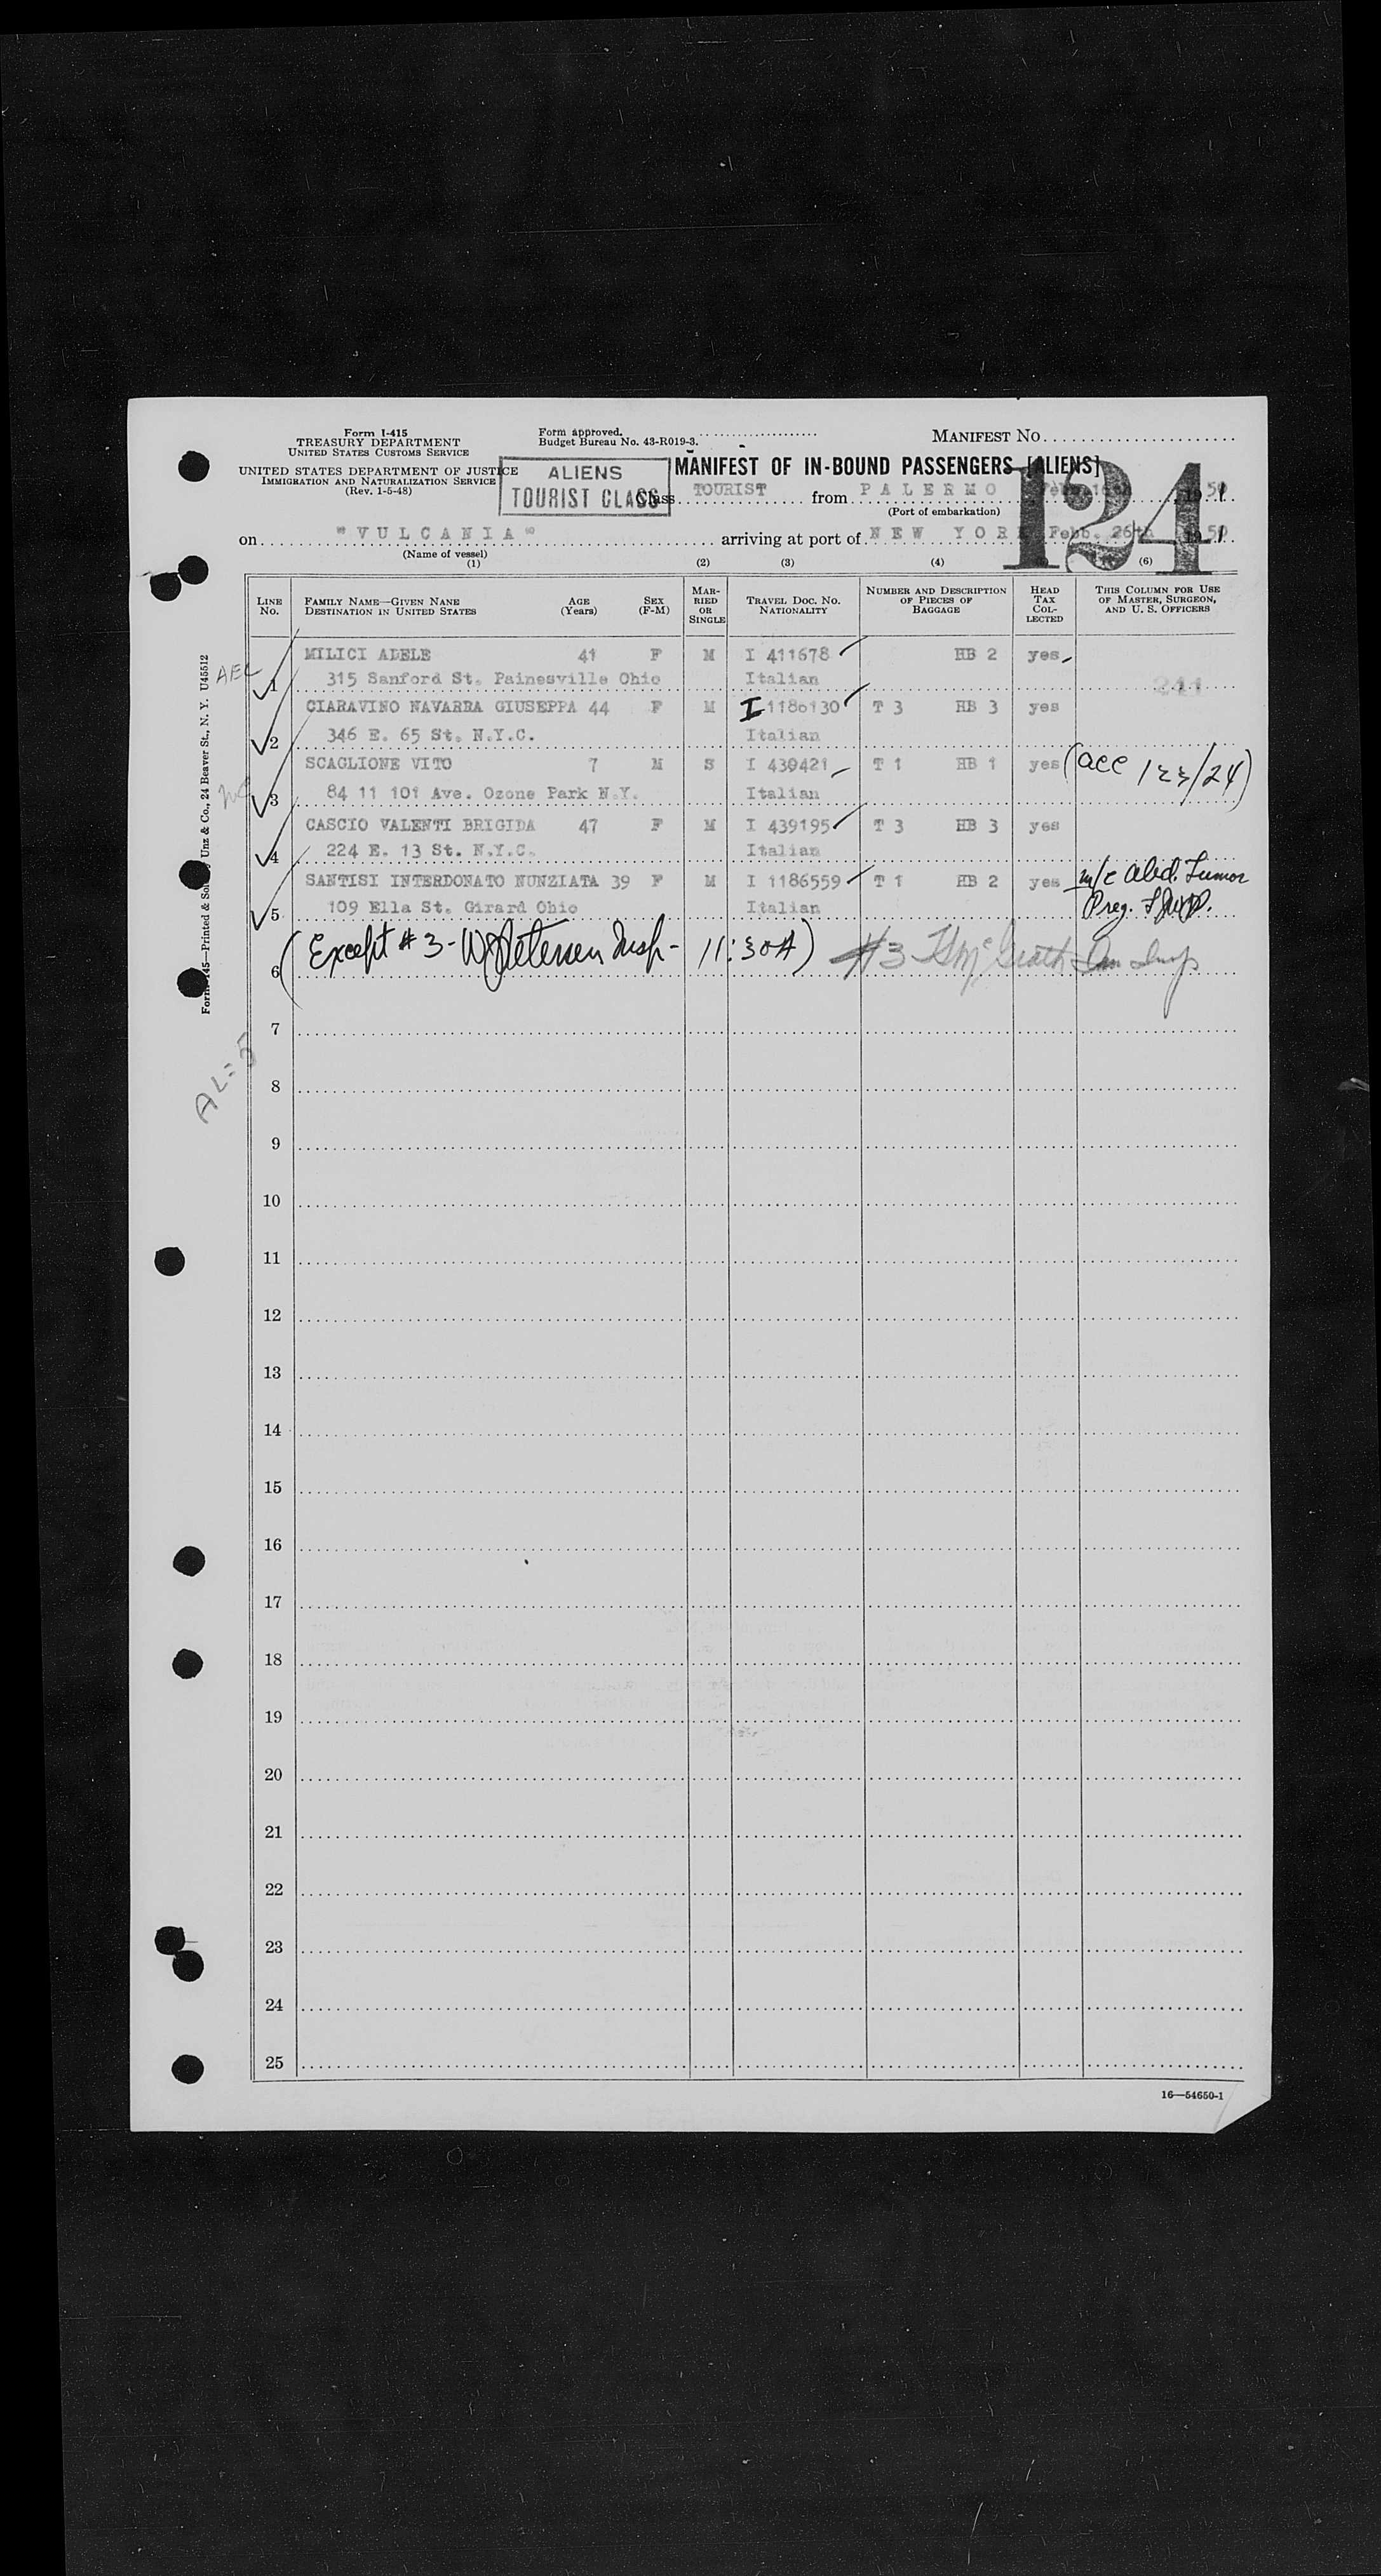 Form I-415
TREASURY DEPARTMENT
UNITED STATES CUSTOMS SERVICE
UNITED STATES DEPARTMENT OF JUSTICE
IMMIGRATION AND NATURALIZATION SERVICE
(Rev. 1-5-48)
Form approved.
Budget Bureau No. 43-R019-3.
MANIFEST NO.
ALIENS
TOURIST CLASS
MANIFEST OF IN-BOUND PASSENGERS [ALIENS]
124
Class TOURIST from PALERMO 19 50
(Port of embarkation)
on "VULCANIA" arriving at port of NEW YORK Febb. 26th 50
(Name of vessel)
(1) (2) (3) (4) (6)
LINE No. FAMILY NAME—GIVEN NANE DESTINATION IN UNITED STATES AGE (Years) SEX (F-M) MARRIED OR SINGLE TRAVEL DOC. NO. NATIONALITY NUMBER AND DESCRIPTION OF PIECES OF BAGGAGE HEAD TAX COLLECTED THIS COLUMN FOR USE OF MASTER, SURGEON, AND U. S. OFFICERS
AEC
MILICI ADELE 41 F M I 411678 HB 2 yes
1 315 Sanford St. Painesville Ohio Italian 241
CIARAVINO NAVARRA GIUSEPPA 44 F M I 1186130 T 3 HB 3 yes
2 346 E. 65 St. N.Y.C. Italian
SCAGLIONE VITO 7 M S I 439421 T 1 HB 1 yes (acc 133/24)
3 84 11 101 Ave. Ozone Park N.Y. Italian
CASCIO VALENTI BRIGIDA 47 F M I 439195 T 3 HB 3 yes
4 224 E. 13 St. N.Y.C. Italian
SANTISI INTERDONATO NUNZIATA 39 F M I 1186559 T 1 HB 2 yes m/c Abd. Tumor
5 109 Ella St. Girard Ohio Italian Preg.
6 (Except #3 - W Petersen Insp- 11:30A) #3 McGrath Imm Insp
7
AL=5
8
9
10
11
12
13
14
15
16
17
18
19
20
21
22
23
24
25
16—54650-1
24 Beaver St., N. Y. U45512